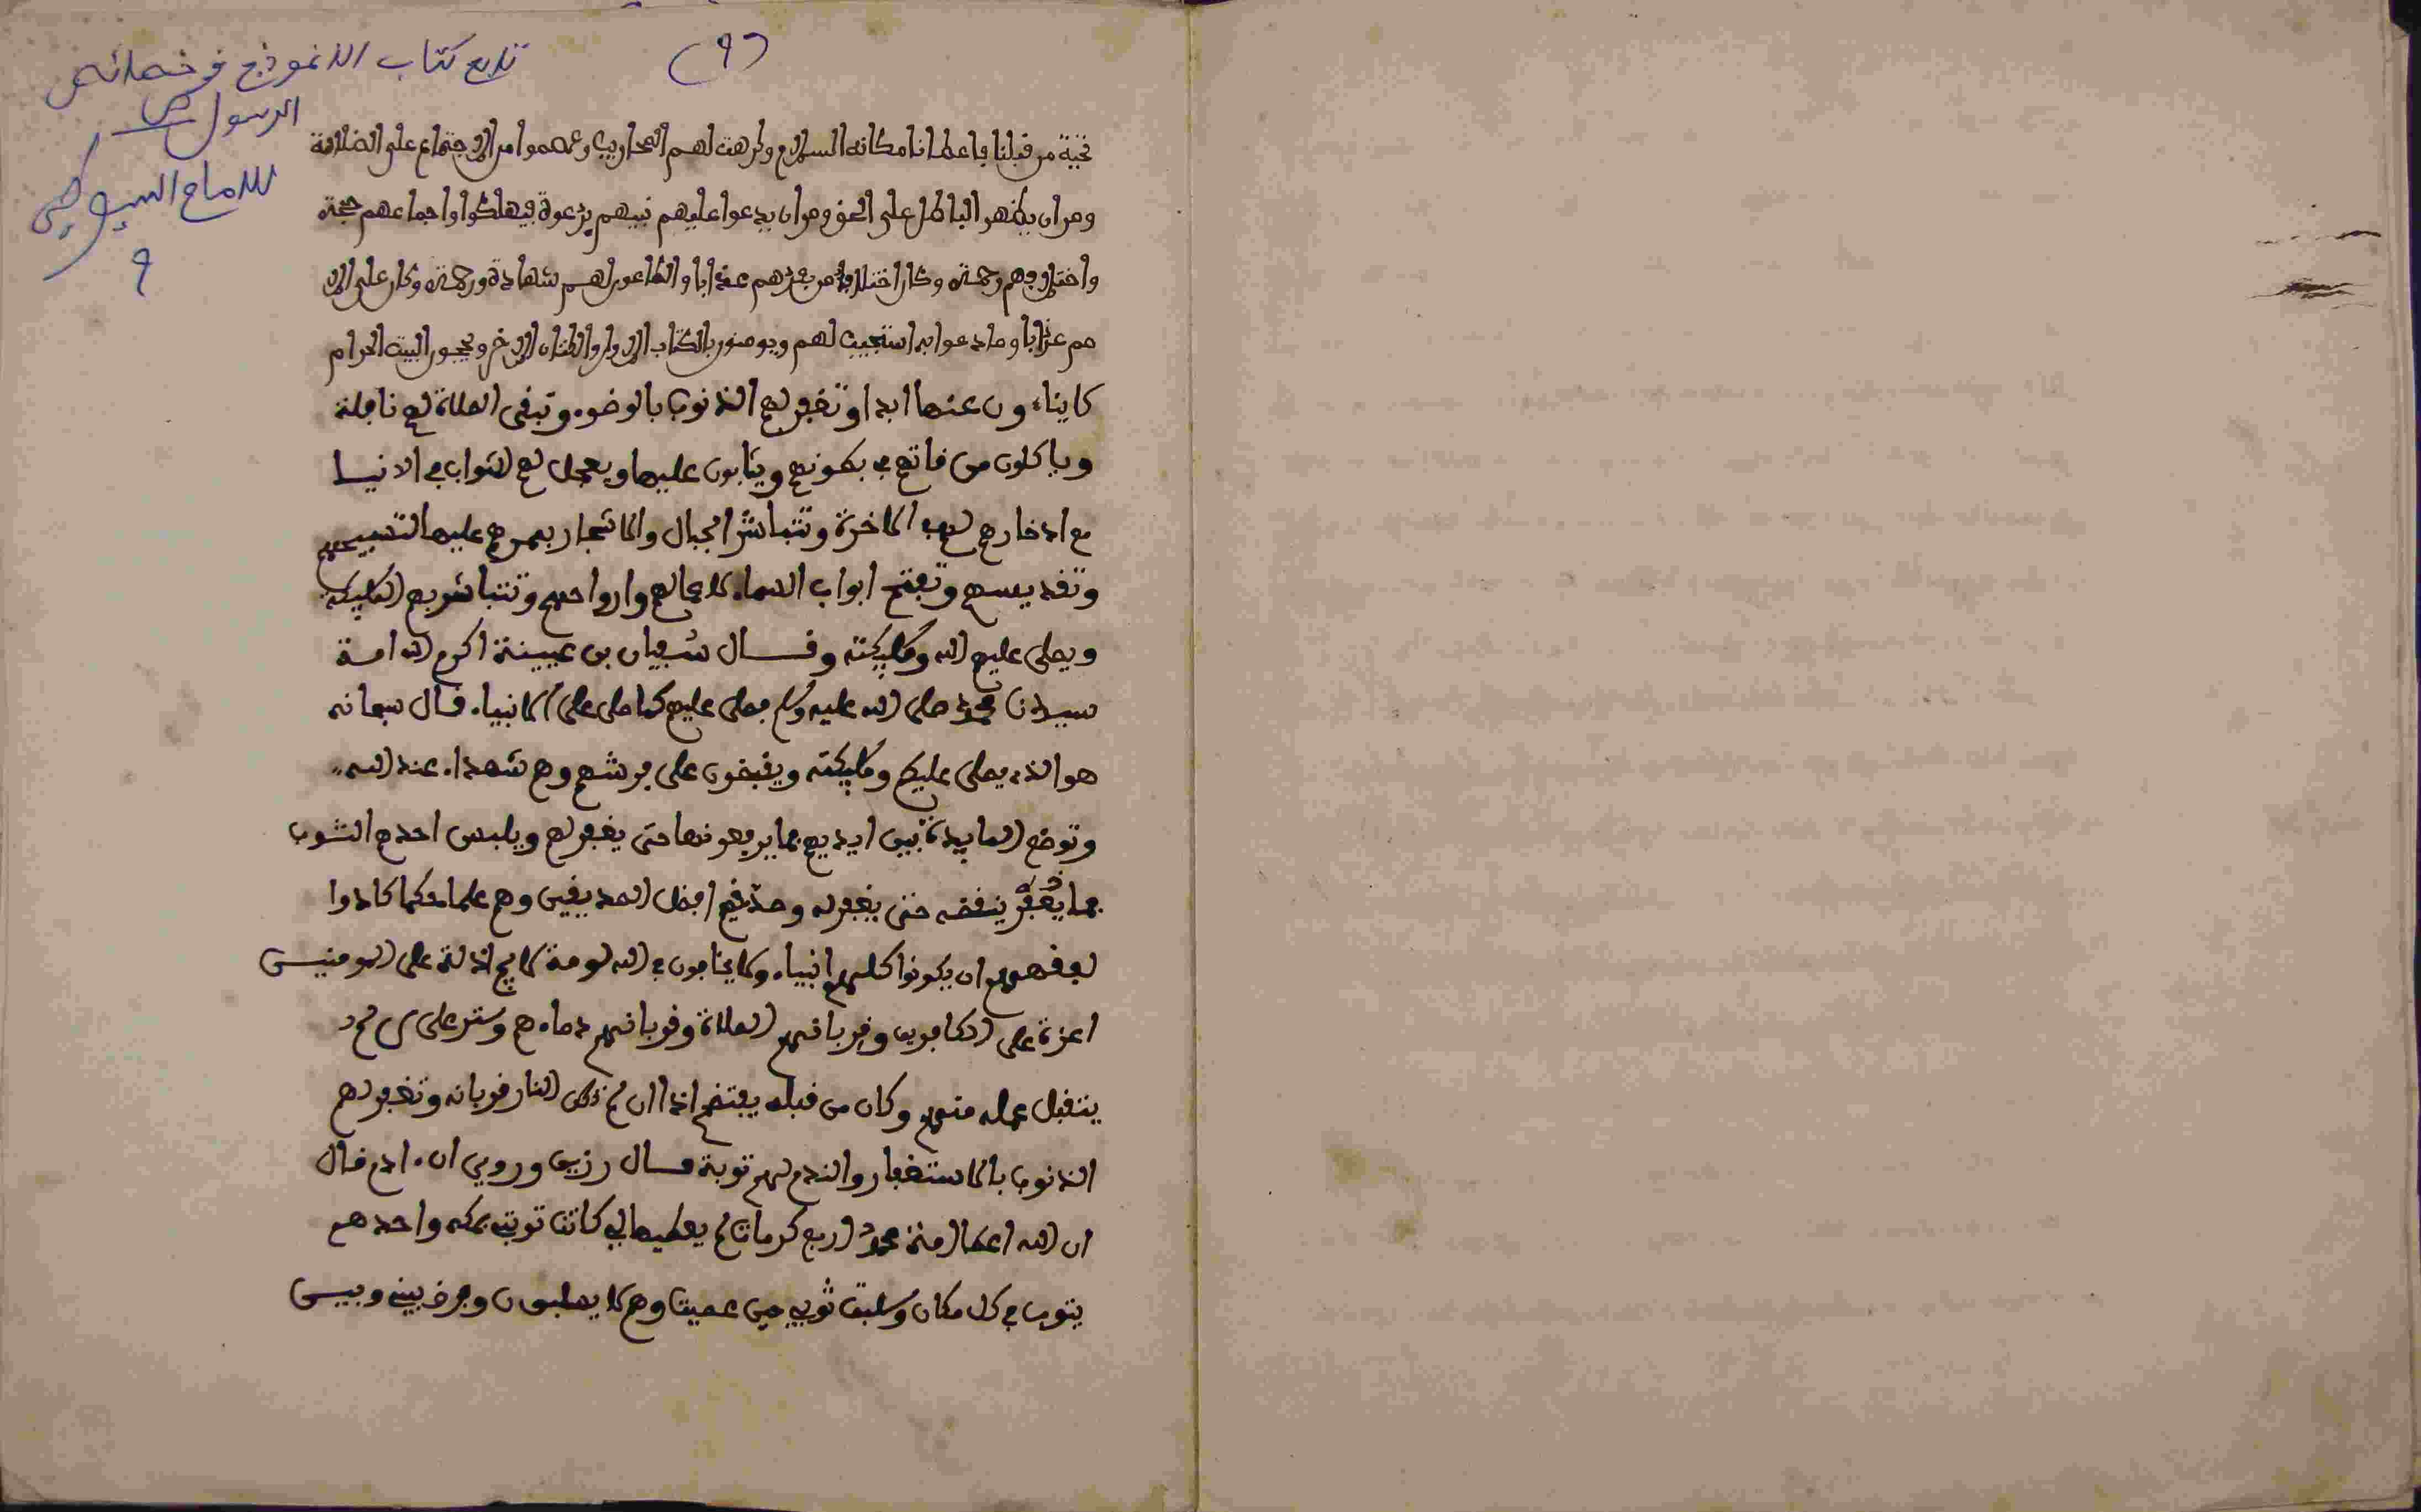 (٩)
تابع كتاب الانموذج في خصائص
الرسول ص
للامام السيوطي
٩
تحية من قبلنا فاعطانا مكانه السلام وكرهت لهم المحاريب وعصموا من الاجتماع على الضلالة
ومن ان يظهر الباطل على الحق ومن ان يدعوا عليهم نبيهم بدعوة فيهلكوا واجماعهم حجة
واختلافهم رحمة وكان اختلاف من بعدهم عذابا والطاعون لهم شهادة ورحمة وكان على الا
مم عذابا وما دعوا به استجيب لهم ويومنون بالكتاب الاول والكتاب الاخر ويحجون البيت الحرام
لا يناءون عنها ابدا وتغفر لهم الذنوب بالوضوء وتبقى الصلاة لهم نافلة
وياكلون صدقاتهم في بطونهم ويثابون عليها ويعجل لهم الثواب في الدنيا
مع ادخاره لهم في الاخرة وتتباشر الجبال والاشجار بممرهم عليها لتسبيحهم
وتقديسهم وتفتح ابواب السماء لاعمالهم وارواحهم وتتباشر بهم الملايكة
ويصلى عليهم الله وملايكته وقال سفيان بن عيينة اكرم الله امة
سيدنا محمد صلى الله عليه وسلم فصلى عليهم كما صلى على الانبياء فقال سبحانه
هو الذي يصلي عليكم وملايكته ويقبضون على فرشهم وهم شهداء عند الله
وتوضع المايدة بين ايديهم فما يرفعونها حتى يغفر لهم ويلبس احدهم الثوب
فما ينفضه حتى يغفر له وصديقهم افضل الصديقين وهم علماء حكما كادوا
لفقههم ان يكونوا كلهم انبياء ولا يخافون في الله لومة لايم اذلة على المومنين
اعزة على الكافرين وقربانهم الصلاة وقربانهم دماءهم وستر على من لم
يتقبل عمله منهم وكان من قبله يفتضح اذا لم تاكل النار قربانه وتغفر لهم
الذنوب بالاستغفار والندم لهم توبة قال رزين وروي ان ءادم قال
ان الله اعطا امة محمد اربع كرمات لم يعطيها لي كانت توبتي بمكة واحدهم
يتوب في كل مكان وسلبت ثوبي حين عصيت وهم لا يسلبون وفرق بيني وبين